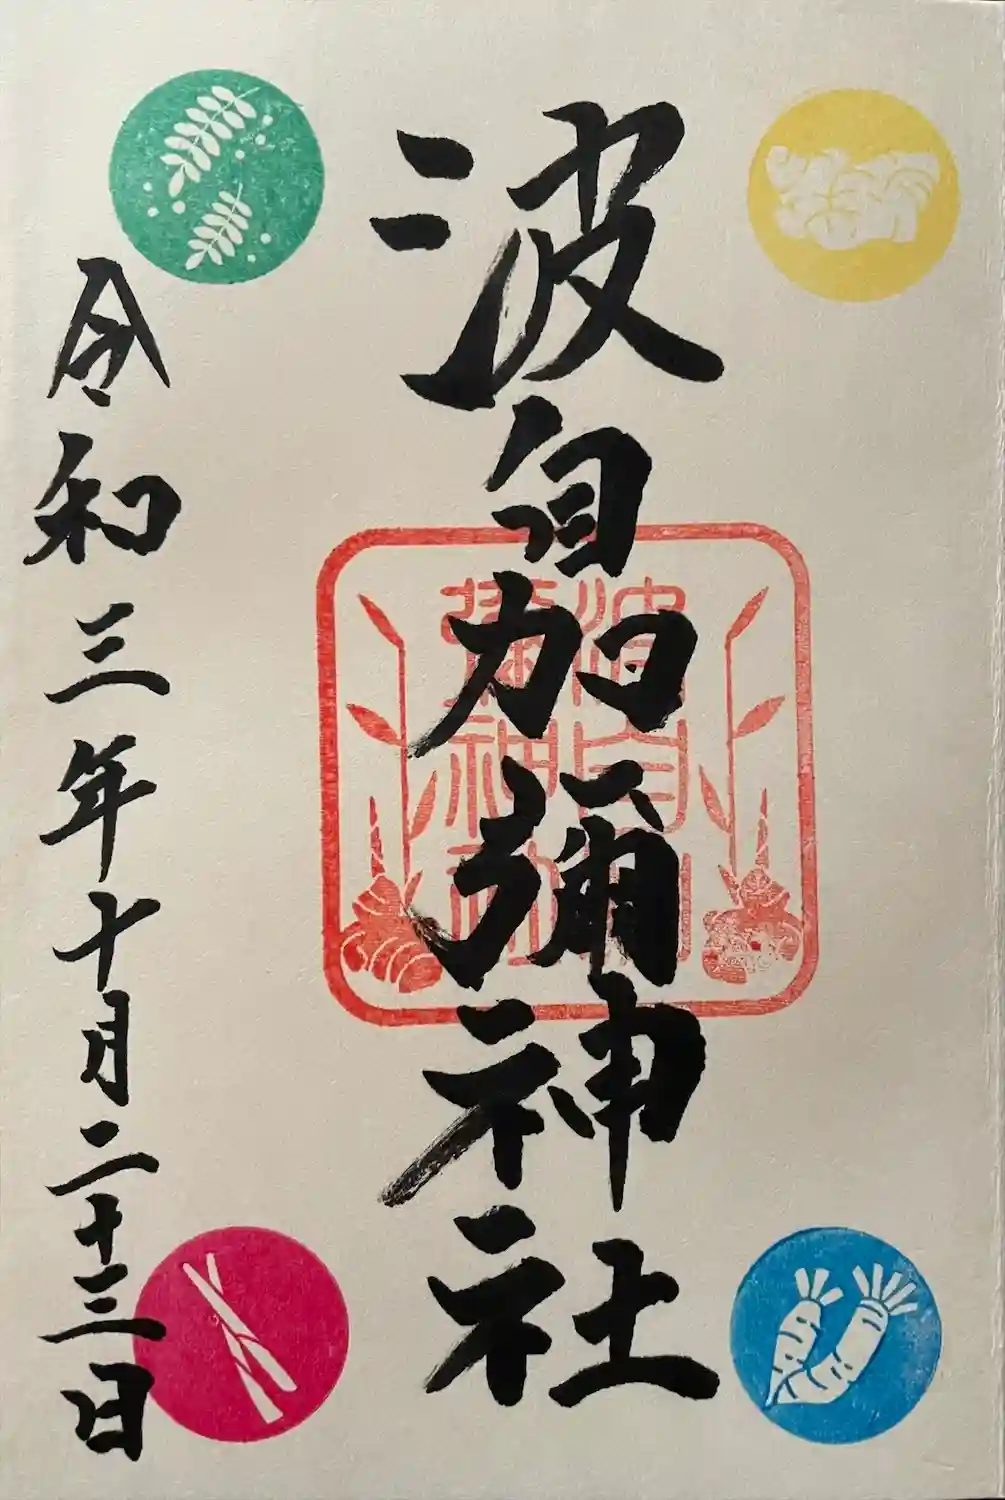 波自加彌神社
波自加彌神社
令和三年十月二十三日